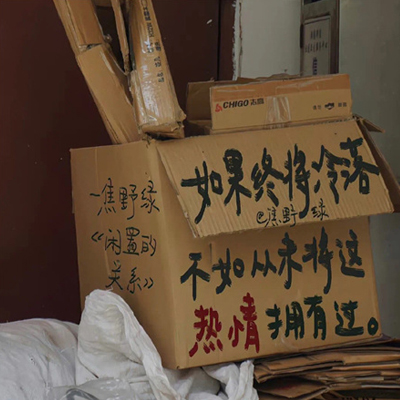 CHIGO志高
如果终将冷落
@焦野 绿
不如从未将这
热情拥有过。
一焦野绿
《闲置的
关系》